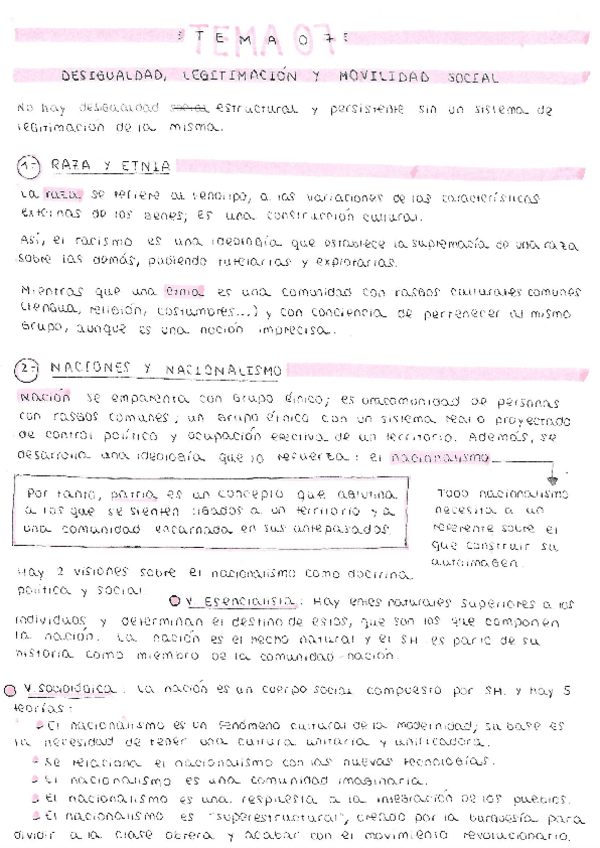 : TEMA 07 :
TEMA 07
DESIGUALDAD, LEGITIMACIÓN Y MOVILIDAD SOCIAL
No hay desigualdad social estructural y persistente sin un sistema de
legitimación de la misma.
1- RAZA Y ETNIA
La raza se refiere al fenotipo, a las variaciones de las características
externas de los genes; es una construcción cultural.
Así, el racismo es una ideología que establece la supremacía de una raza
sobre las demás, pudiendo tutelarlas y explotarlas.
Mientras que una etnia es una comunidad con rasgos culturales comunes
(lengua, religión, costumbres...) y con conciencia de pertenecer al mismo
grupo, aunque es una noción imprecisa.
2- NACIONES Y NACIONALISMO
Nación se emparenta con grupo étnico; es una comunidad de personas
con rasgos comunes; un grupo étnico con un sistema real o proyectado
de control político y ocupación efectiva de un territorio. Además, se
desarrolla una ideología que lo refuerza: el nacionalismo
Por tanto, patria es un concepto que aglutina
a los que se sienten ligados a un territorio y a
una comunidad encarnada en sus antepasados.
Todo nacionalismo
necesita a un
referente sobre el
que construir su
autoimagen.
Hay 2 visiones sobre el nacionalismo como doctrina
política y social
V. Esencialista: Hay entes naturales superiores a los
individuos y determinan el destino de estos, que son los que componen
la nación. La nación es el hecho natural y el SH es parte de su
historia como miembro de la comunidad-nación.
V. Sociológica: La nación es un cuerpo social compuesto por SH. y hay 5
teorías:
El nacionalismo es un fenómeno cultural de la modernidad; su base es
la necesidad de tener una cultura unitaria y unificadora.
Se relaciona el nacionalismo con las nuevas tecnologías.
El nacionalismo es una comunidad imaginaria.
El nacionalismo es una respuesta a la integración de los pueblos.
El nacionalismo es "superestructural", creado por la burguesía para
dividir a la clase obrera y acabar con el movimiento revolucionario.